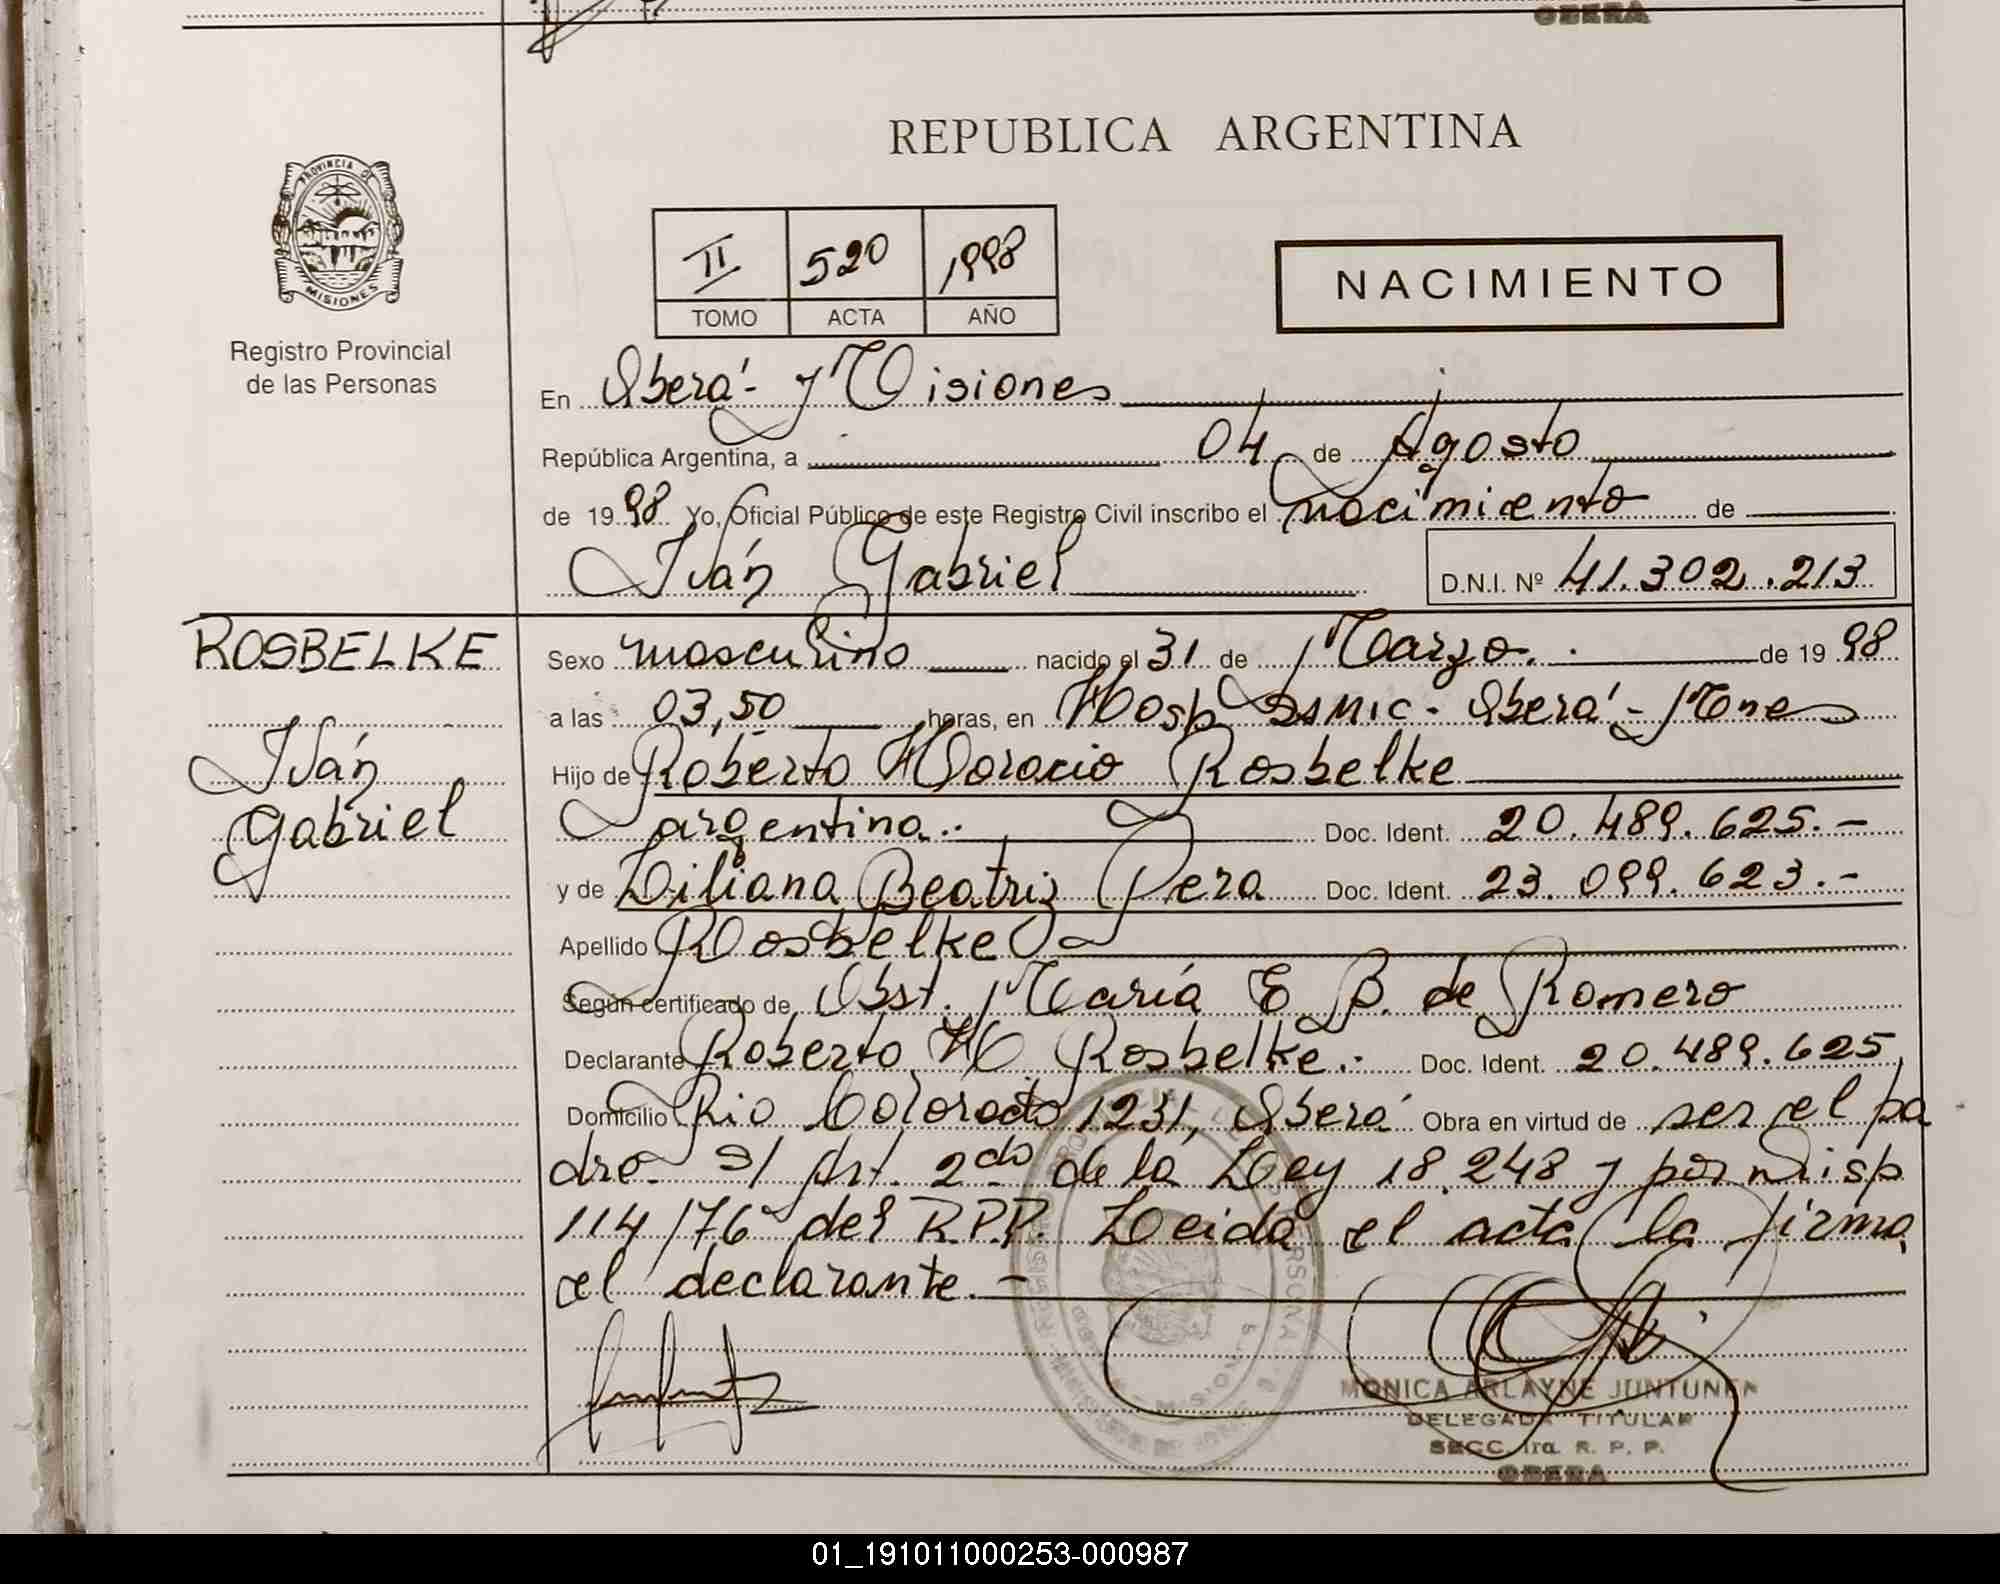 OBERA
REPUBLICA ARGENTINA
PROVINCIA DE
MISIONES
Registro Provincial
de las Personas
II 520 1998
TOMO ACTA AÑO
NACIMIENTO
En Oberá - Misiones
República Argentina, a 04 de Agosto
de 1998 Yo, Oficial Público de este Registro Civil inscribo el nacimiento de
Iván Gabriel D.N.I. Nº 41.302.213
ROSBELKE
Iván
Gabriel
Sexo masculino nacido el 31 de Marzo. de 1998
a las 03,50 horas, en Hosp SAMIC - Oberá - Mnes
Hijo de Roberto Horacio Rosbelke
argentina.. Doc. Ident. 20.489.625.-
y de Liliana Beatriz Pera Doc. Ident. 23.099.623.-
Apellido Rosbelke
Según certificado de Obst. María E B. de Romero
Declarante Roberto H Rosbelke.- Doc. Ident. 20.489.625,
Domicilio Rio Colorado 1231, Oberá Obra en virtud de ser el pa
dre s/ Art. 2do de la Ley 18.248 y por Disp
114/76 del R.P.P. Leida el acta la firma
el declarante.-
MONICA ARLAYNE JUNTUNEN
DELEGADA TITULAR
SECC. 1ra. R. P. P.
OBERA
01_191011000253-000987